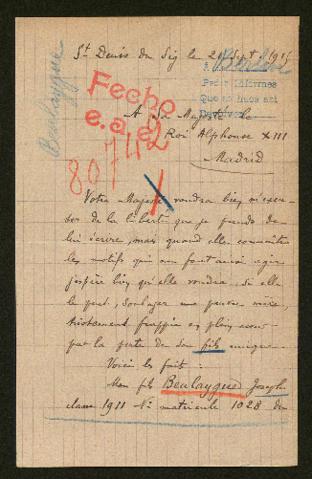 St Denis du Sig le 2 Sept 1915
Beulaygue
Berlin
Pedir informes
Fecho
e.a.
A Sa Majesté le
Roi Alphonse XIII
Madrid
80742
Votre Majesté voudra bien m'excu-
ser de la liberté que je prends de
lui écrire, mais quand elle connaîtra
les motifs qui me font ainsi agir
j'espère bien qu'elle voudra, si elle
le peut, soulager une pauvre mère,
tristement frappée en plein cœur
par la perte de son fils unique.
Voici les faits :
Mon fils Beulaygue Joseph
classe 1911 No matricule 1028 du